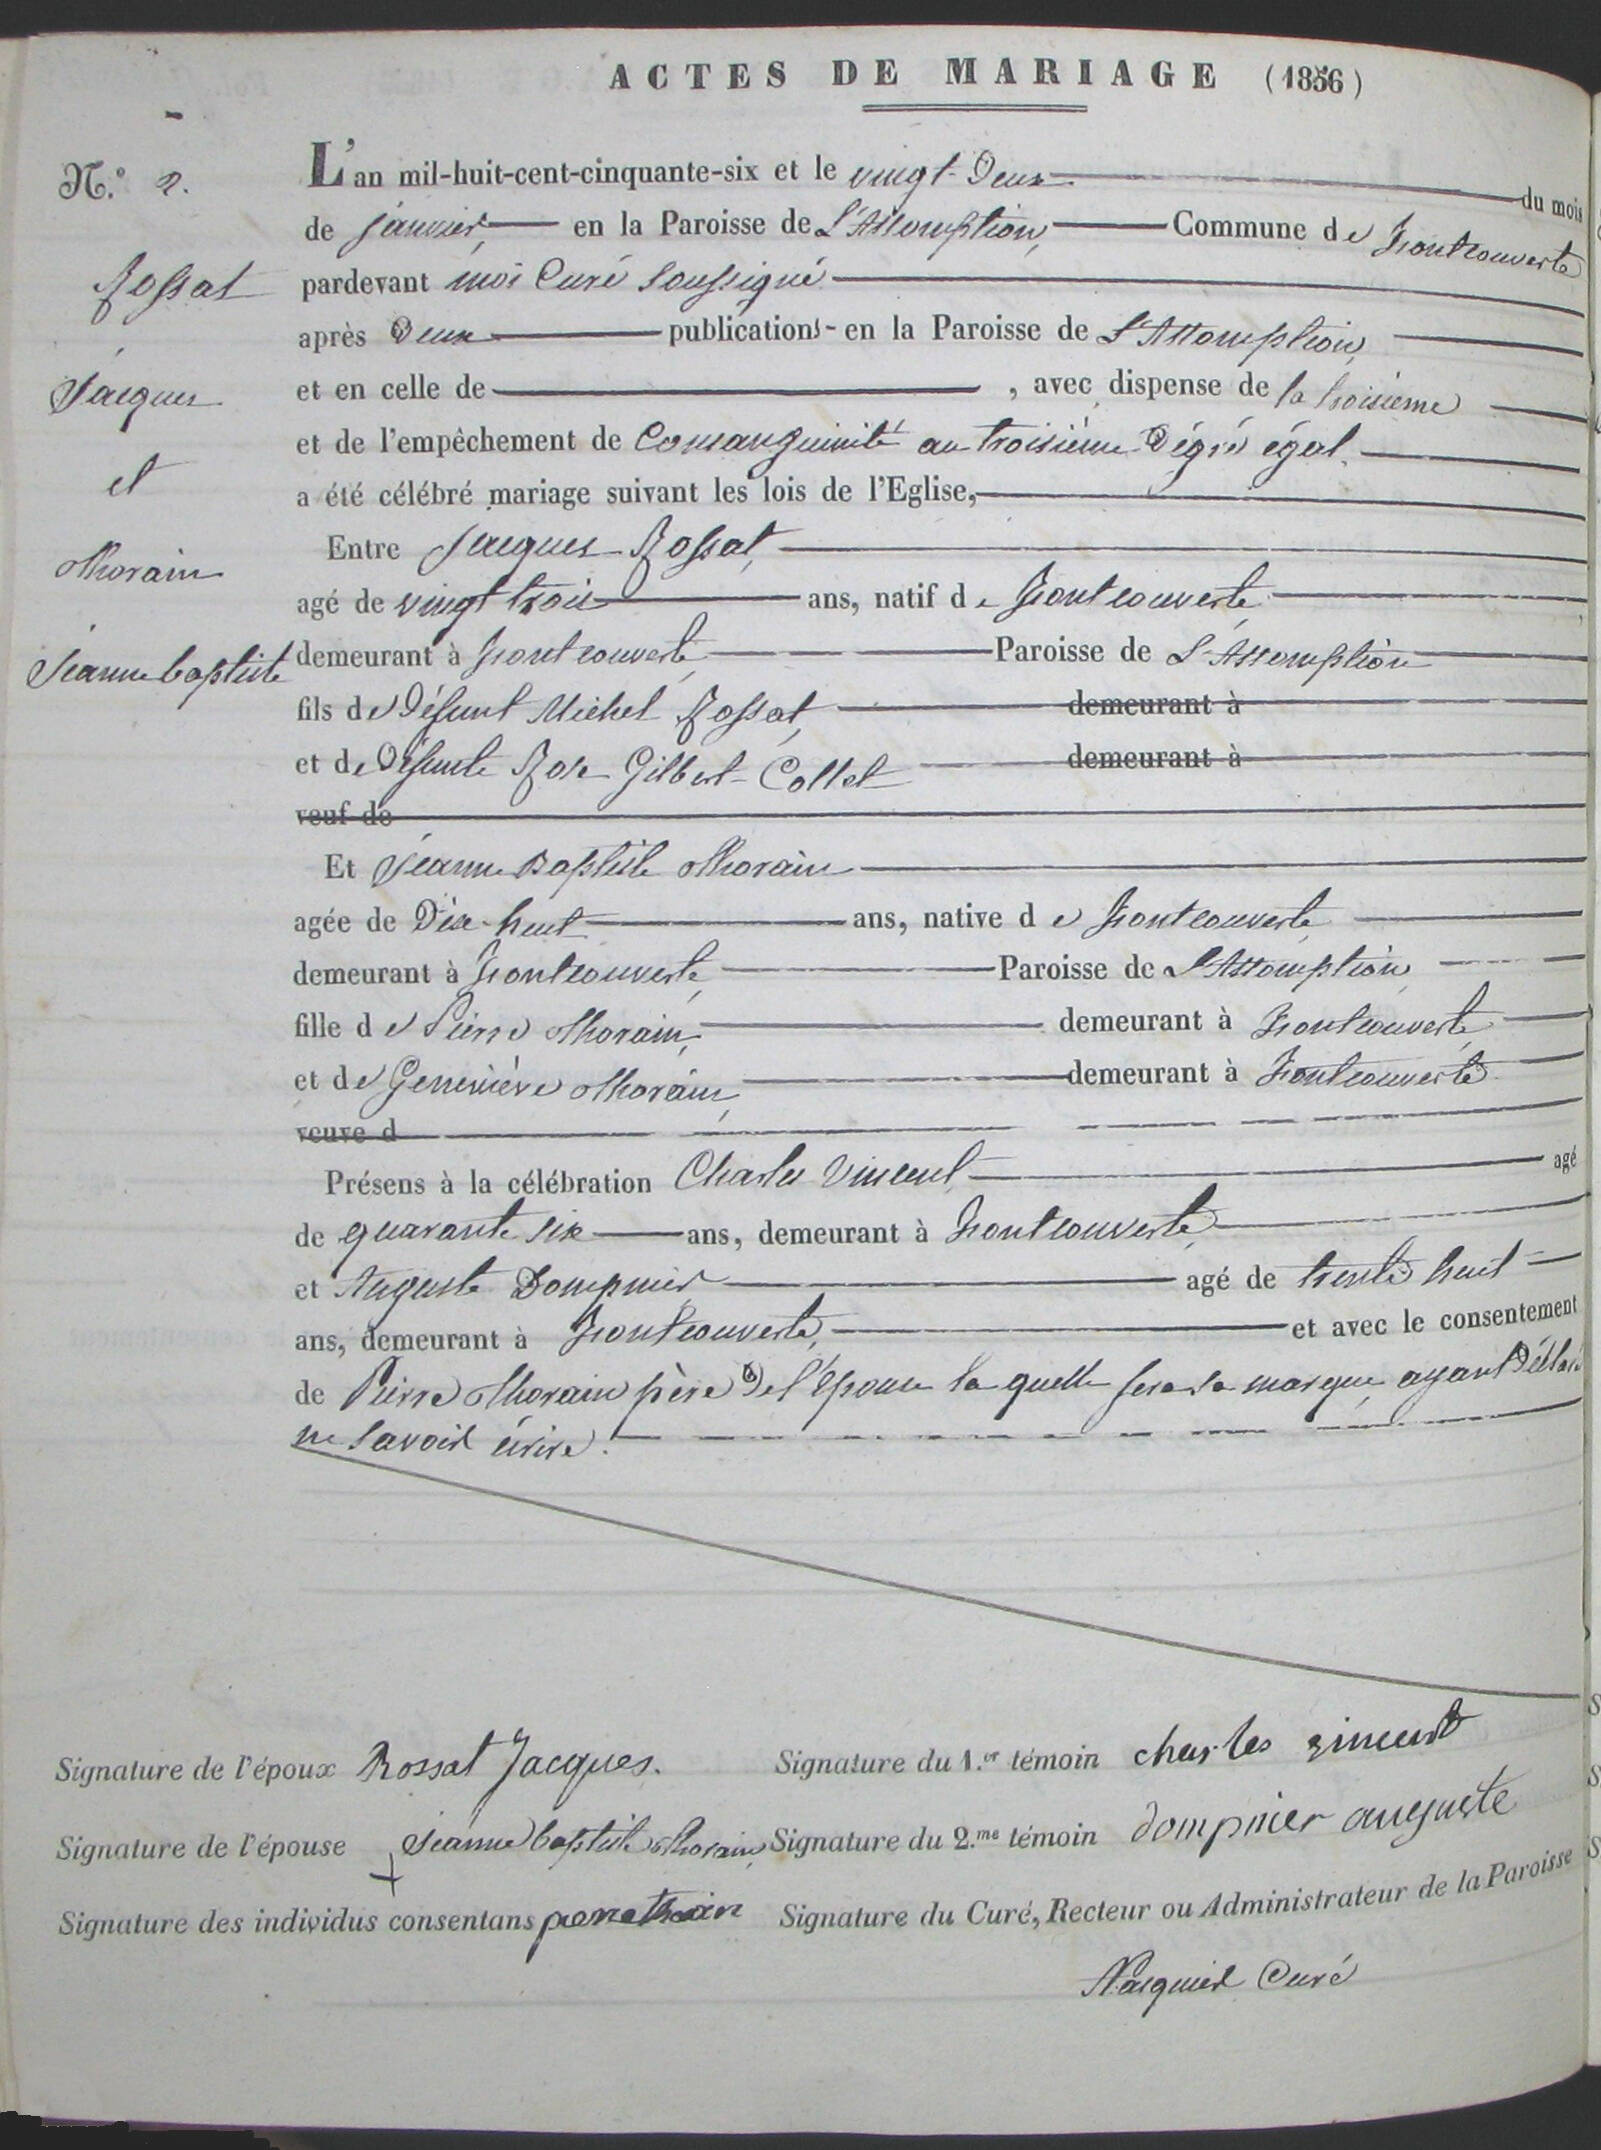 ACTES DE MARIAGE (1856)
N.º 2.
L'an mil-huit-cent-cinquante-six et le vingt-Deux du mois
de janvier, en la Paroisse de L'Assomption, Commune de Fontcouverte
Rossat
pardevant moi Curé soussigné
après Deux publications en la Paroisse de L'Assomption,
Jacques
et en celle de , avec dispense de la troisième
et de l'empêchement de Consanguinité au troisième Dégré égal.
et
a été célébré mariage suivant les lois de l'Eglise,
Entre Jacques Rossat,
Thorain
agé de vingt trois ans, natif de Fontcouverte,
Jeanne baptiste
demeurant à Fontcouverte, Paroisse de L'Assomption
fils de Défunt Michel Rossat, demeurant à
et de Défunte Rose Gilbert-Collet demeurant à
veuf de
Et Jeanne Baptiste Thorain
agée de Dix-huit ans, native de Fontcouverte,
demeurant à Fontcouverte, Paroisse de L'Assomption,
fille de Pierre Thorain, demeurant à Fontcouverte,
et de Geneviève Thorain, demeurant à Fontcouverte
veuve d
Présens à la célébration Charles Vincent agé
de quarante six ans, demeurant à Fontcouverte,
et Auguste Dompnier agé de trente huit
ans, demeurant à Fontcouverte, et avec le consentement
de Pierre Thorain père De l'épouse la quelle fera sa marque, ayant Déclaré
ne savoir écrire.
Signature de l'époux Rossat Jacques.
Signature du 1.er témoin charles vincent
Signature de l'épouse + Jeanne baptiste Thorain
Signature du 2.me témoin dompnier auguste
Signature des individus consentans
Signature du Curé, Recteur ou Administrateur de la Paroisse
Curé